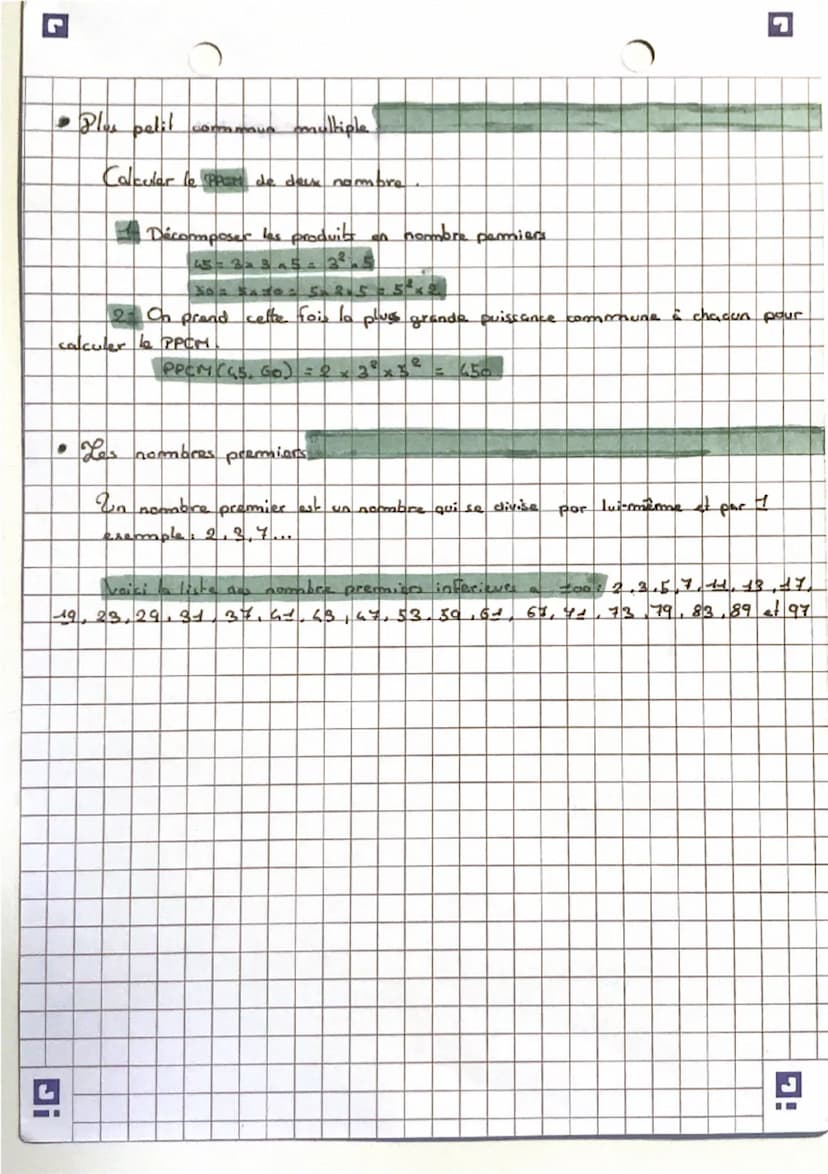 • Plus petit commun multiple
Calculer le PPCM de deux nombre.
1- Décomposer les produits en nombre permiers
45 = 3 x 3 x 5 = 3² x 5
50 = 5 x 10 = 5 x 2 x 5 = 5² x 2
2- On prend cette fois la plus grande puissance commune à chacun pour
calculer le PPCM.
PPCM (45, 60) = 2 x 3² x 5² = 450
• Les nombres premiers
Un nombre premier est un nombre qui se divise par lui-même et par 1
exemple : 2, 3, 7...
Voici la liste des nombre premiers inferieurs a 100 : 2, 3, 5, 7, 11, 13, 17,
19, 23, 29, 31, 37, 41, 43, 47, 53, 59, 61, 67, 71, 73, 79, 83, 89 et 97